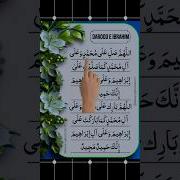 DAROOD E IBRAHIM
اللَّهُمَّ صَلِّ عَلَى مُحَمَّدٍ وَعَلَى
آلِ مُحَمَّدٍ كَمَا صَلَّيْتَ عَلَى
إِبْرَاهِيمَ وَعَلَى آلِ إِبْرَاهِيمَ
إِنَّكَ
اللَّهُمَّ بَارِكْ عَلَى
آلِ مُحَمَّدٍ كَمَا بَارَكْتَ عَلَى
إِبْرَاهِيمَ وَعَلَى آلِ إِبْرَاهِيمَ
إِنَّكَ حَمِيدٌ مَجِيدٌ